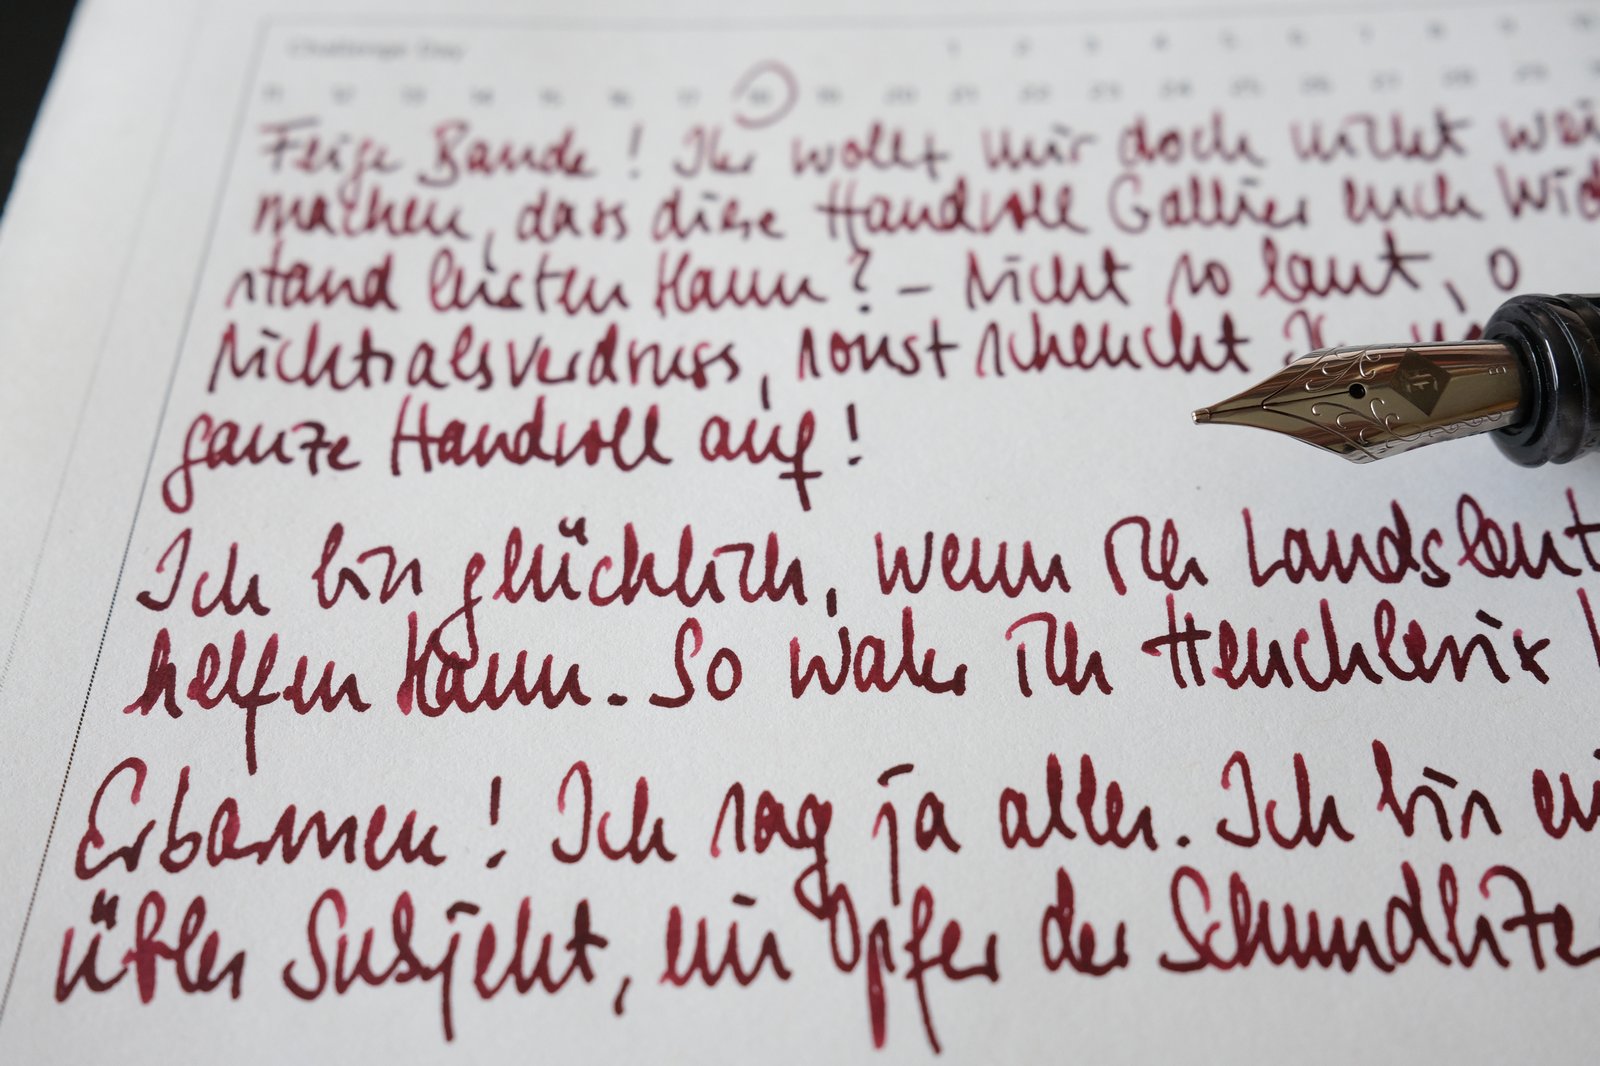 Challenge Day 1 2 3 4 5 6 7 8 9 10
11 12 13 14 15 16 17 18 19 20 21 22 23 24 25 26 27 28 29
Feige Bande! Ihr wollt mir doch nicht wei
machen, dass diese Handvoll Gallier euch Wid
stand leisten kann? – Nicht so laut, o
Nichtsalsverdruss, sonst scheucht Ihr
ganze Handvoll auf!
Ich bin glücklich, wenn ich Landsleut
helfen kann. So wahr ich Hencklerix
Erbarmen! Ich sag ja alles. Ich bin ei
übles Subjekt, ein Opfer der Schundlite